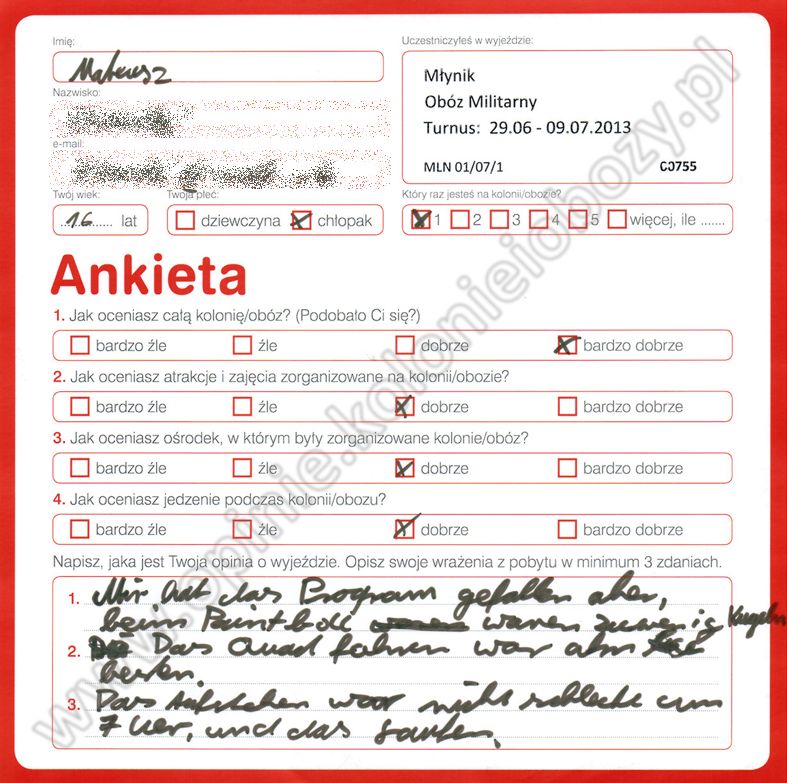 Imię:
Mateusz
Nazwisko:
e-mail:
Twój wiek:
16 lat
Twoja płeć:
dziewczyna chłopak
Uczestniczyłeś w wyjeździe:
Młynik
Obóz Militarny
Turnus: 29.06 - 09.07.2013
MLN 01/07/1 C0755
Który raz jesteś na kolonii/obozie?
1 2 3 4 5 więcej, ile .......
Ankieta
1. Jak oceniasz całą kolonię/obóz? (Podobało Ci się?)
bardzo źle źle dobrze bardzo dobrze
2. Jak oceniasz atrakcje i zajęcia zorganizowane na kolonii/obozie?
bardzo źle źle dobrze bardzo dobrze
3. Jak oceniasz ośrodek, w którym były zorganizowane kolonie/obóz?
bardzo źle źle dobrze bardzo dobrze
4. Jak oceniasz jedzenie podczas kolonii/obozu?
bardzo źle źle dobrze bardzo dobrze
Napisz, jaka jest Twoja opinia o wyjeździe. Opisz swoje wrażenia z pobytu w minimum 3 zdaniach.
1. Mir hat das Program gefallen aber,
beim Paintball waren zuwenig Kugeln
2. Das Quad fahren war am
besten.
3. Das Aufstehen war nicht schlecht um
7 Uer, und das
www.opinie.kolonieiobozy.pl